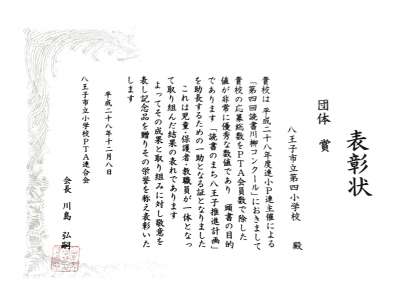 表彰状
団体賞
八王子市立第四小学校 殿
貴校は 平成二十八年度連小P連主催による
「第四回読書川柳コンクール」におきまして
貴校の応募総数をPTA会員数で除した
値が非常に優秀な数値であり 頭書の目的
であります「読書のまち八王子推進計画」
を助長するための一助となる証となりました
これは児童・保護者・教職員が一体となっ
て取り組んだ結果の表れであります
よってその成果と取り組みに対し敬意を
表し記念品を贈りその栄誉を称え表彰いた
します
平成二十八年十二月八日
八王子市立小学校PTA連合会
会長 川島 弘嗣